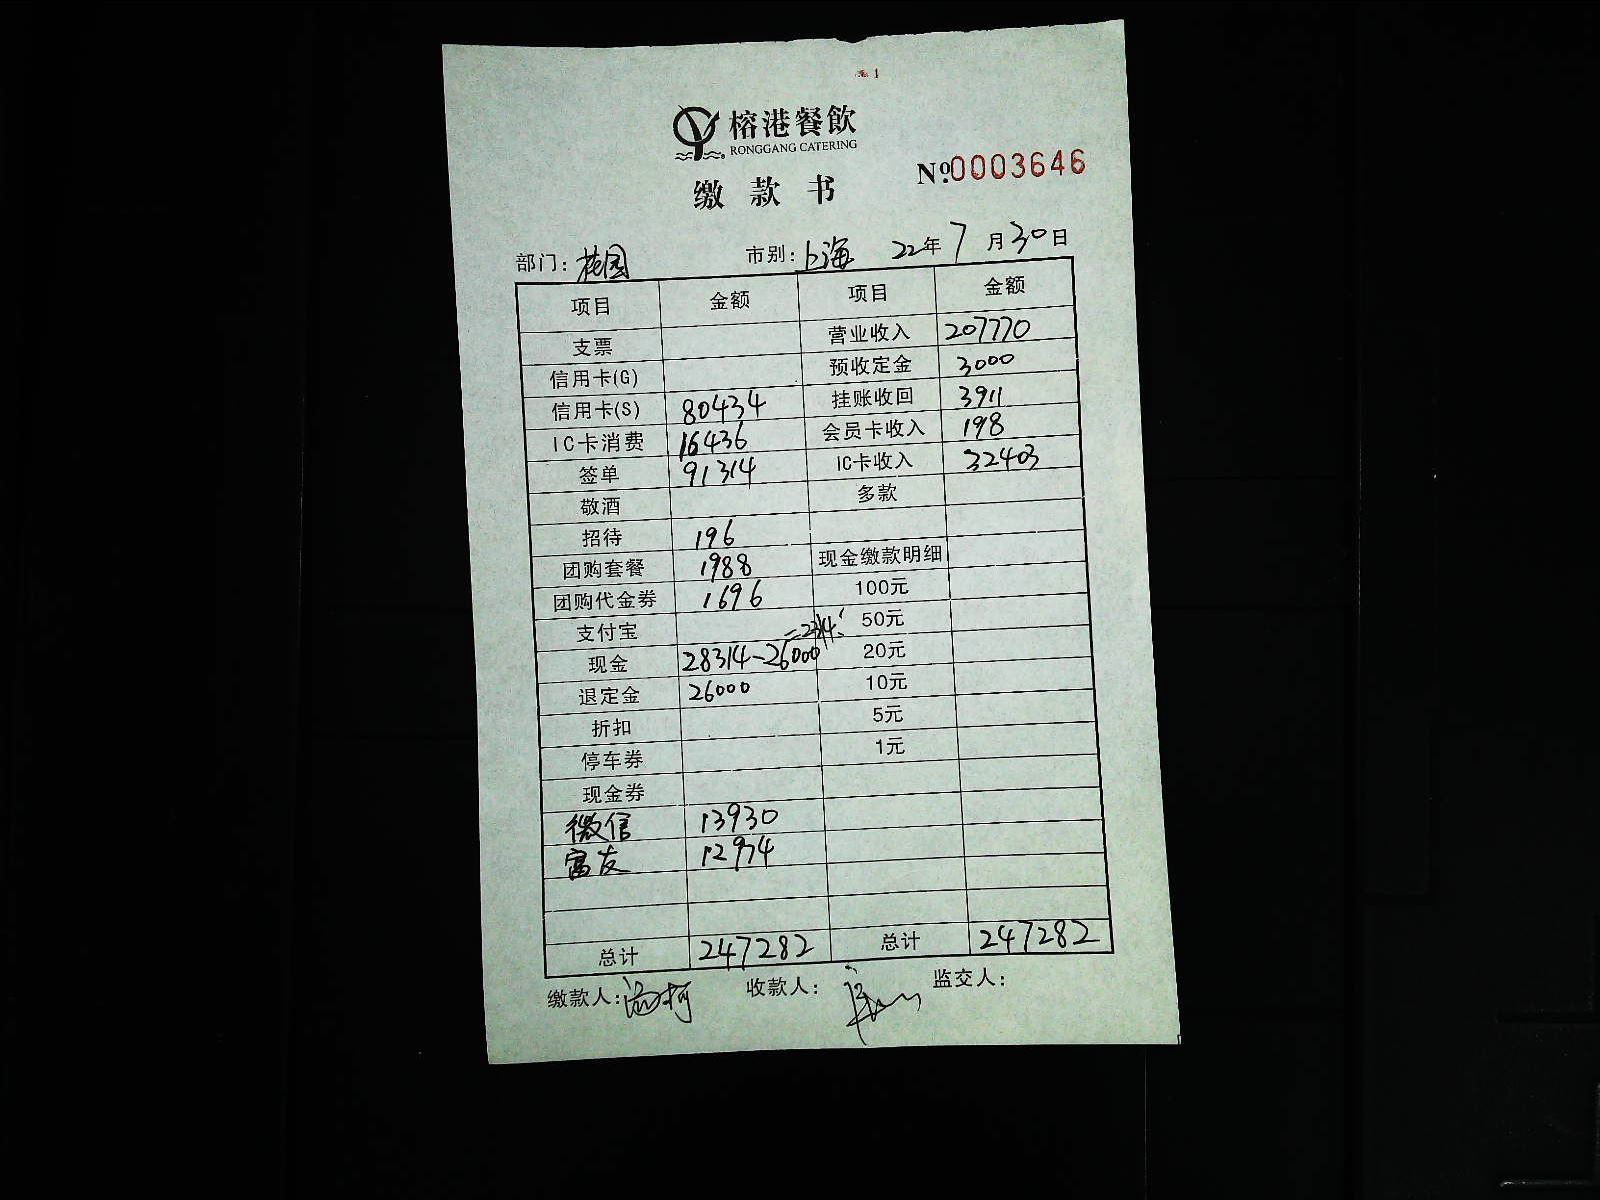 榕港餐飲
RONGGANG CATERING
№0003646
缴款书
部门: 花园 市别: 上海 22年 7月 30日
项目 金额 项目 金额
支票 营业收入 207770
信用卡(G) 预收定金 3000
信用卡(S) 80434 挂账收回 3911
IC卡消费 16436 会员卡收入 198
签单 91314 IC卡收入 32403
敬酒 多款
招待 196
团购套餐 1988 现金缴款明细
团购代金券 1696 100元
支付宝 =2314 50元
现金 28314-26000 20元
退定金 26000 10元
折扣 5元
停车券 1元
现金券
微信 13930
富友 12974
总计 247282 总计 247282
缴款人: 收款人: 监交人: